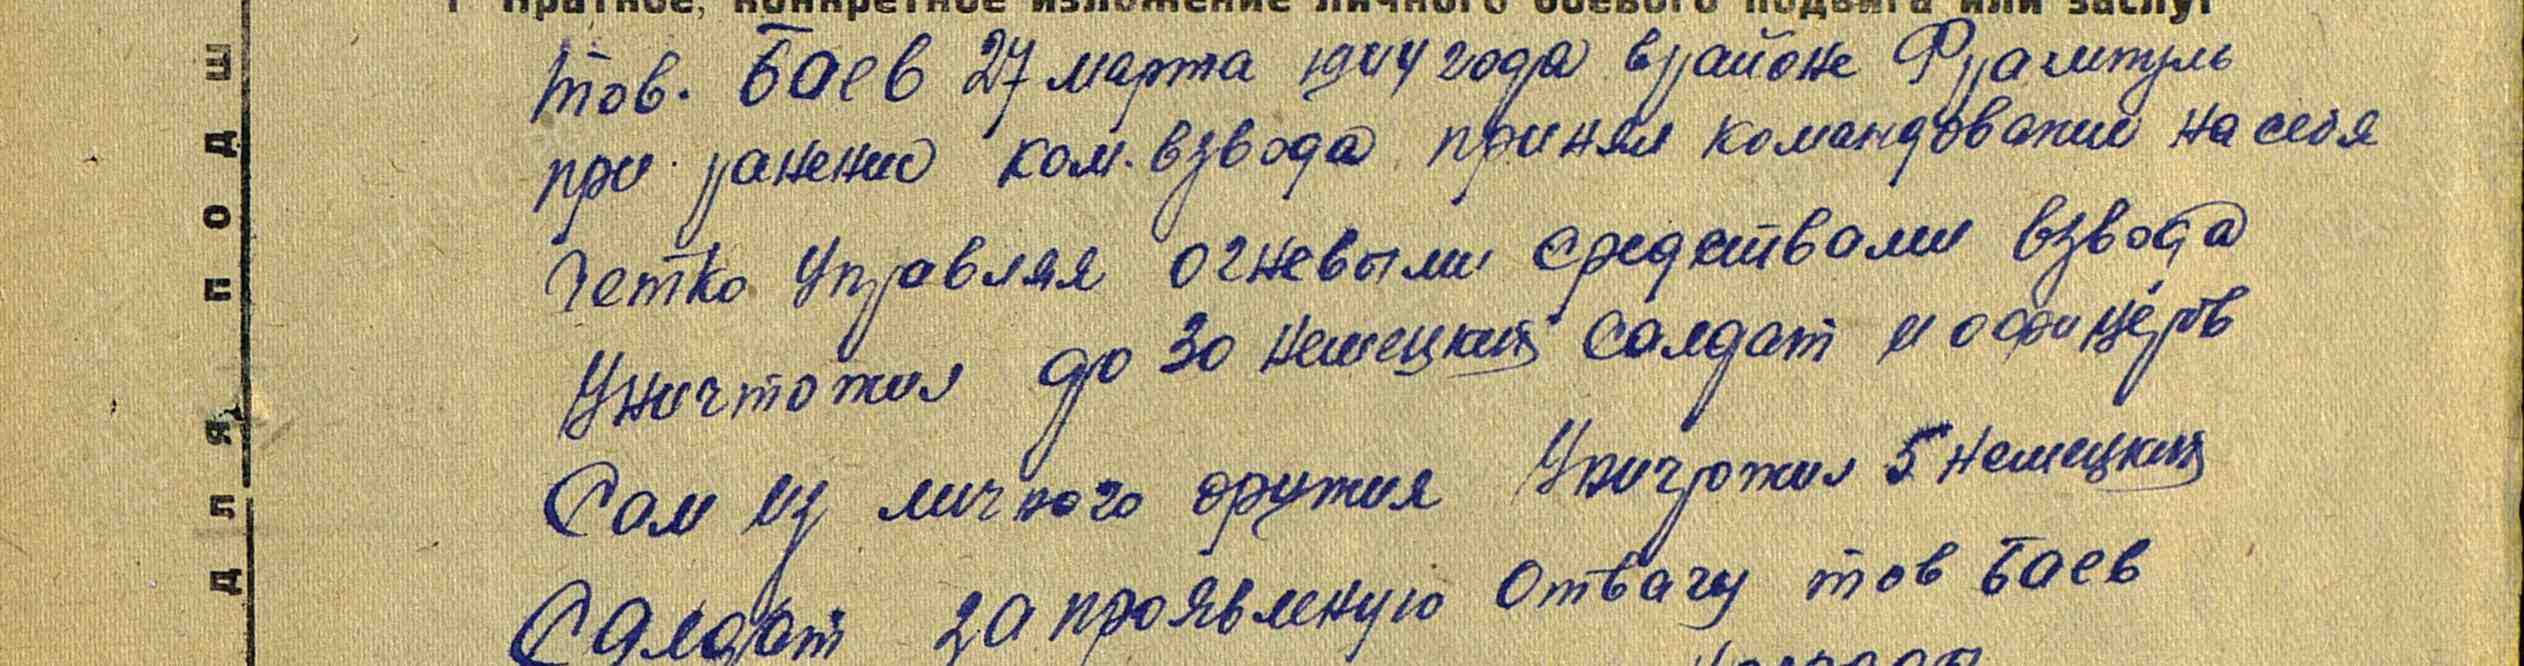 Краткое, конкретное изложение личного боевого подвига или заслуг
Тов. Баев 27 марта 1944 года в районе Фрамтуль
при ранении ком. взвода принял командование на себя
четко управляя огневыми средствами взвода
Уничтожил до 30 немецких салдат и офицеров
Сам из личного оружия Уничтожил 5 немецких
Салдат за проявленую Отвагу тов Баев
для подш